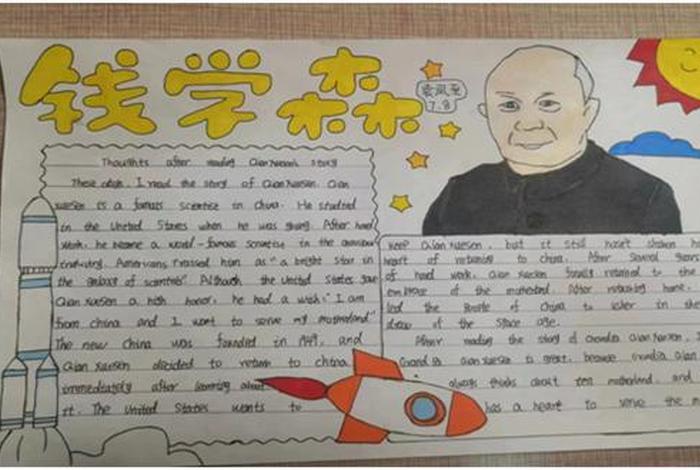 钱学森
7.8
Thoughts after reading Qian Xuesen's story
These days, I read the story of Qian Xuesen. Qian
xuesen is a famous scientist in China. He studied
in the United States when he was young. After hard
work, he became a world-famous scientist in the
industry. Americans him as "a bright star in
the galaxy of scientists". Although the United States gave
Qian Xuesen a high honor, he had a wish. "I am
from china and I want to serve my motherland"
The new China was founded in 1949, and
Qian Xuesen decided to return to china
immediately after learning about
it. The United States wants to
keep Qian Xuesen, but it still hasn't shaken h
heart of returning to china. After several years
of hard work, Qian Xuesen finally returned to the
embrace of the motherland. After returning home,
led the people of China to usher in the
dawn of the space age.
After reading the story of Grandpa Qian Xuesen, I
Grandpa Qian Xuesen is great, because Grandpa Qian
always thinks about motherland, and
has a heart to serve the m